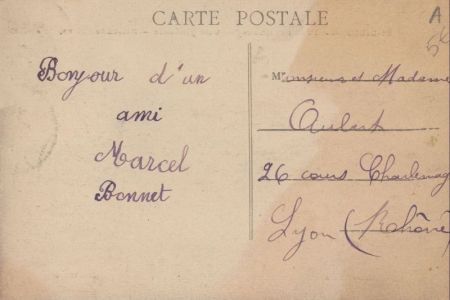 CARTE POSTALE
A
Bonjour d'un
ami
Marcel
Bonnet
Monsieur et Madame
26 cours Charlemag
Lyon (Rhône)